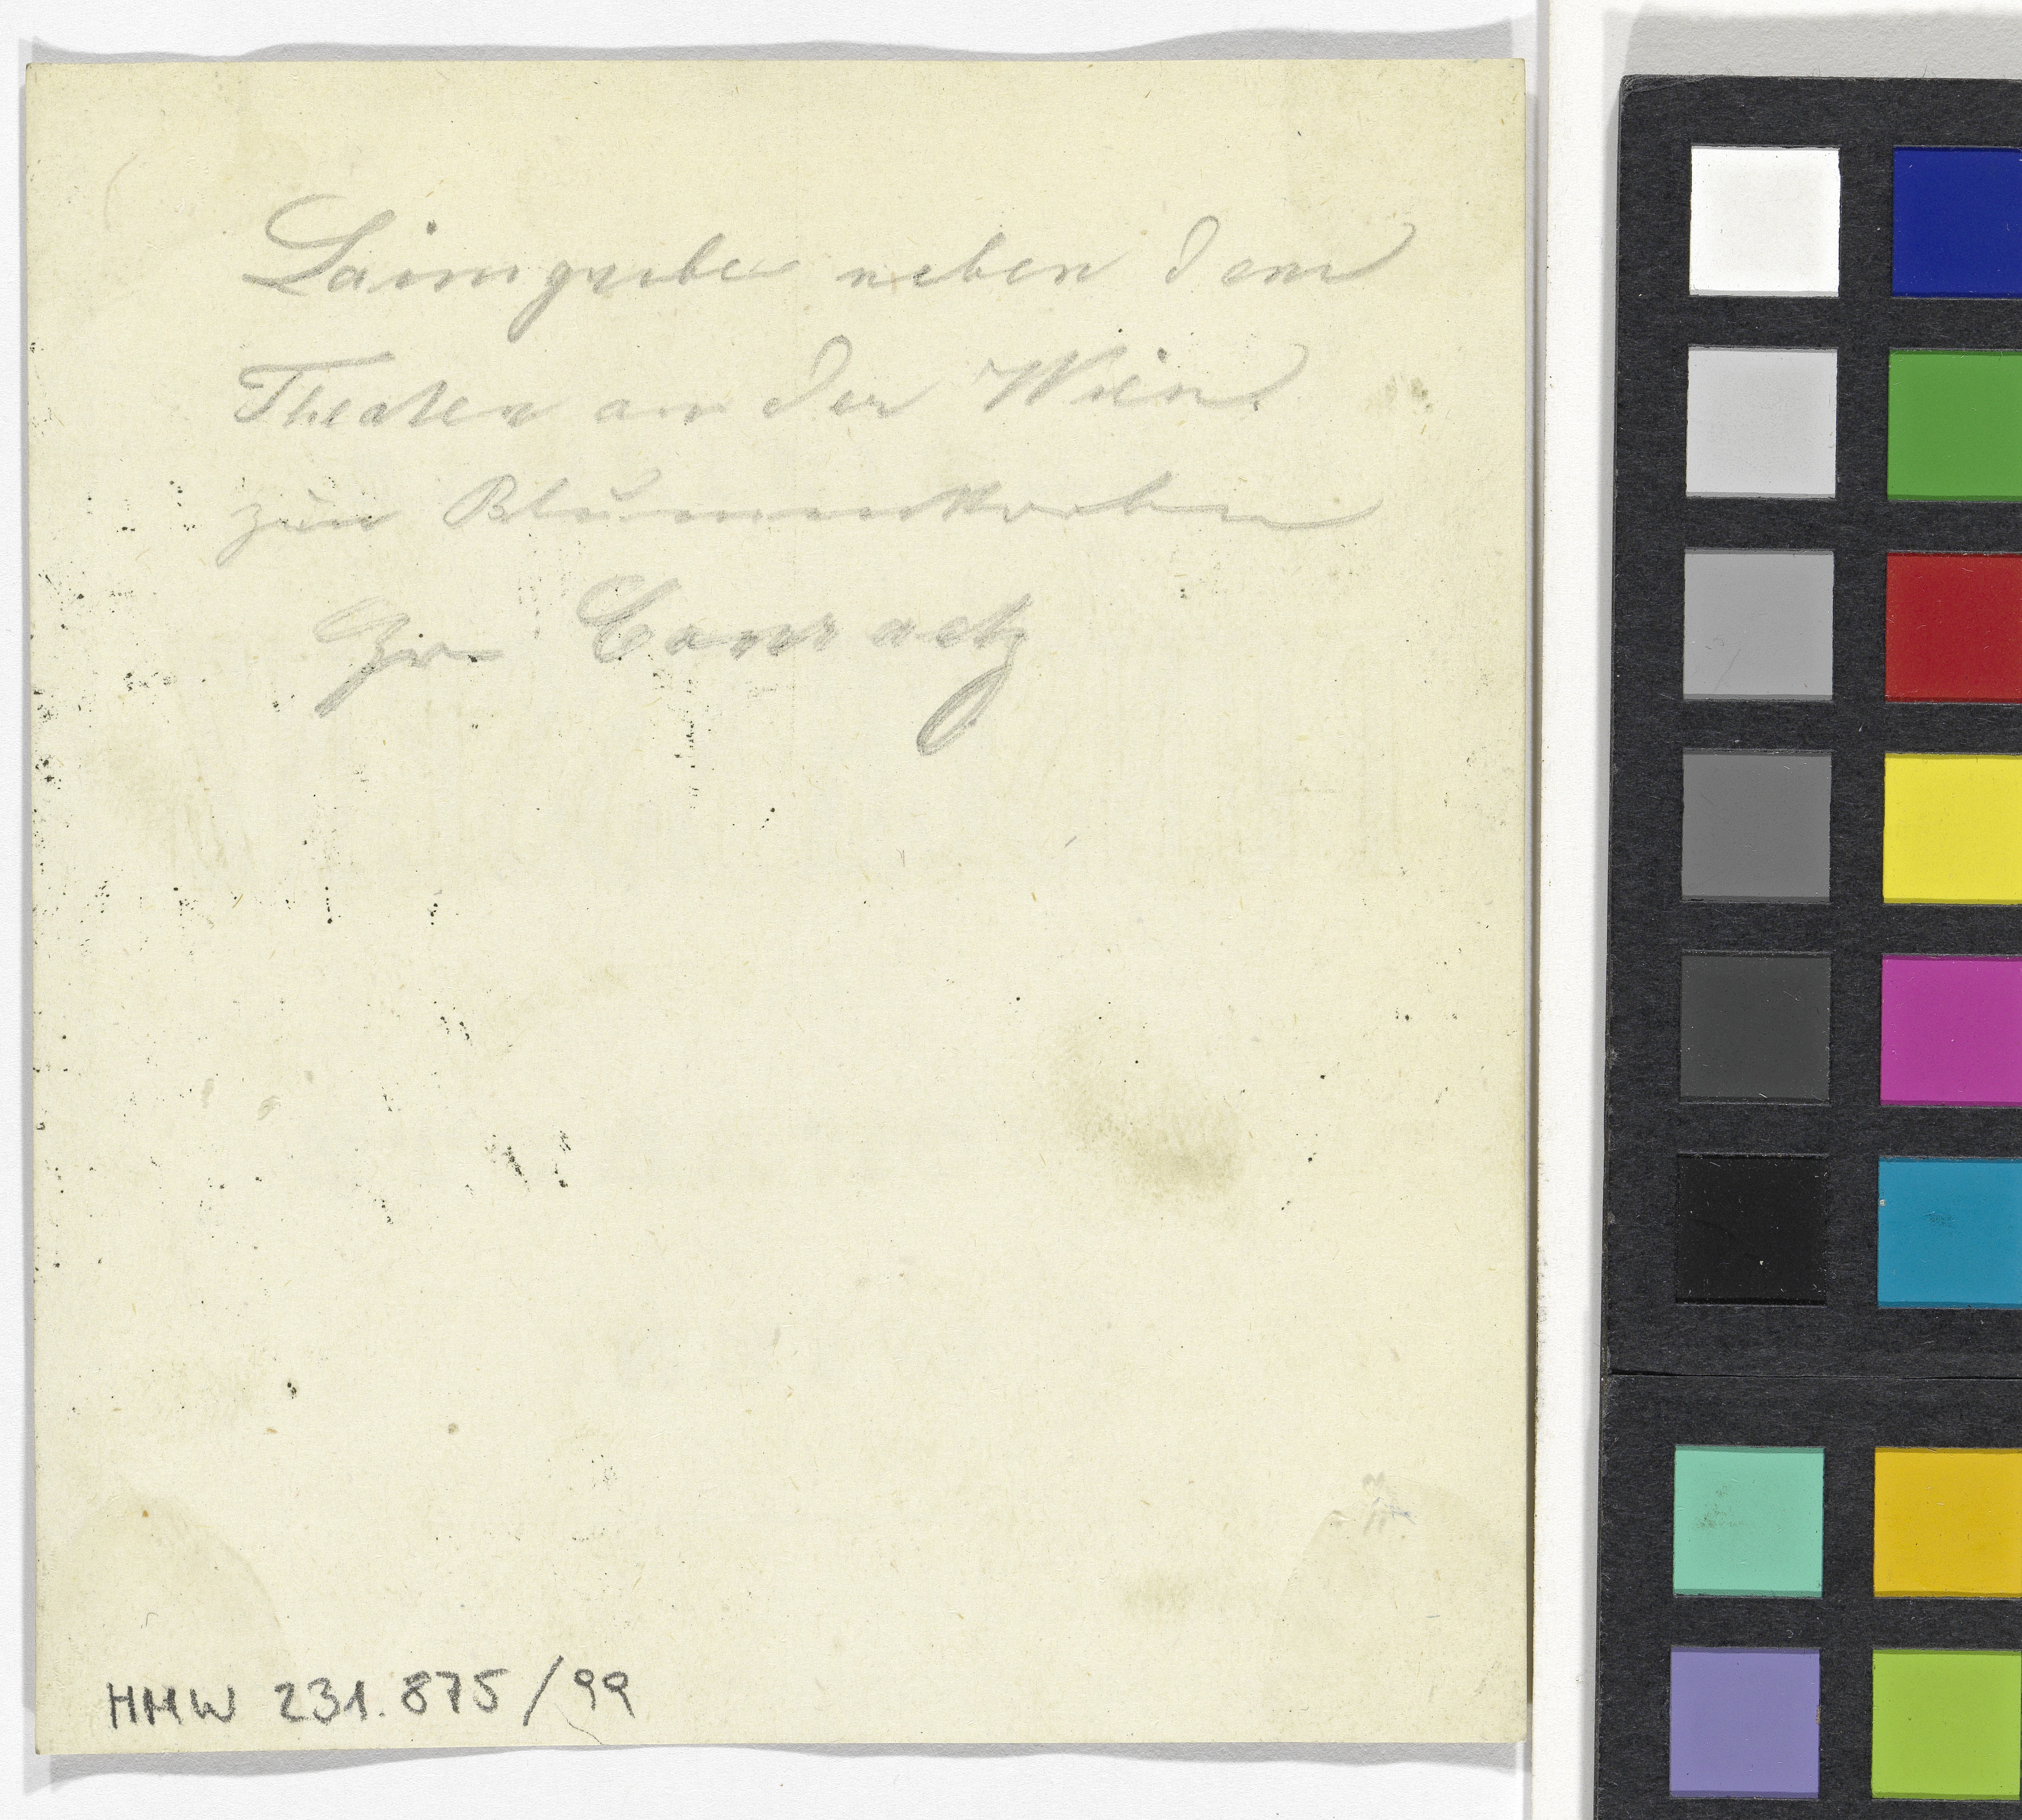 Laimgrube neben dem
Theater an der Wien
zum Blumenkorbe
Gr. Conraetz
HMW 231.875/99